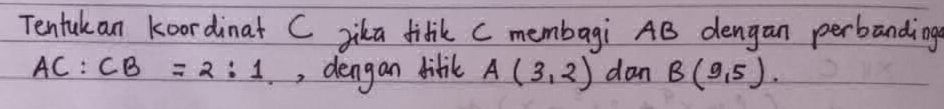 Tentukan koordinat C jika titik C membagi AB dengan perbandinga
AC : CB = 2 : 1. , dengan titik A (3,2) dan B (9,5).